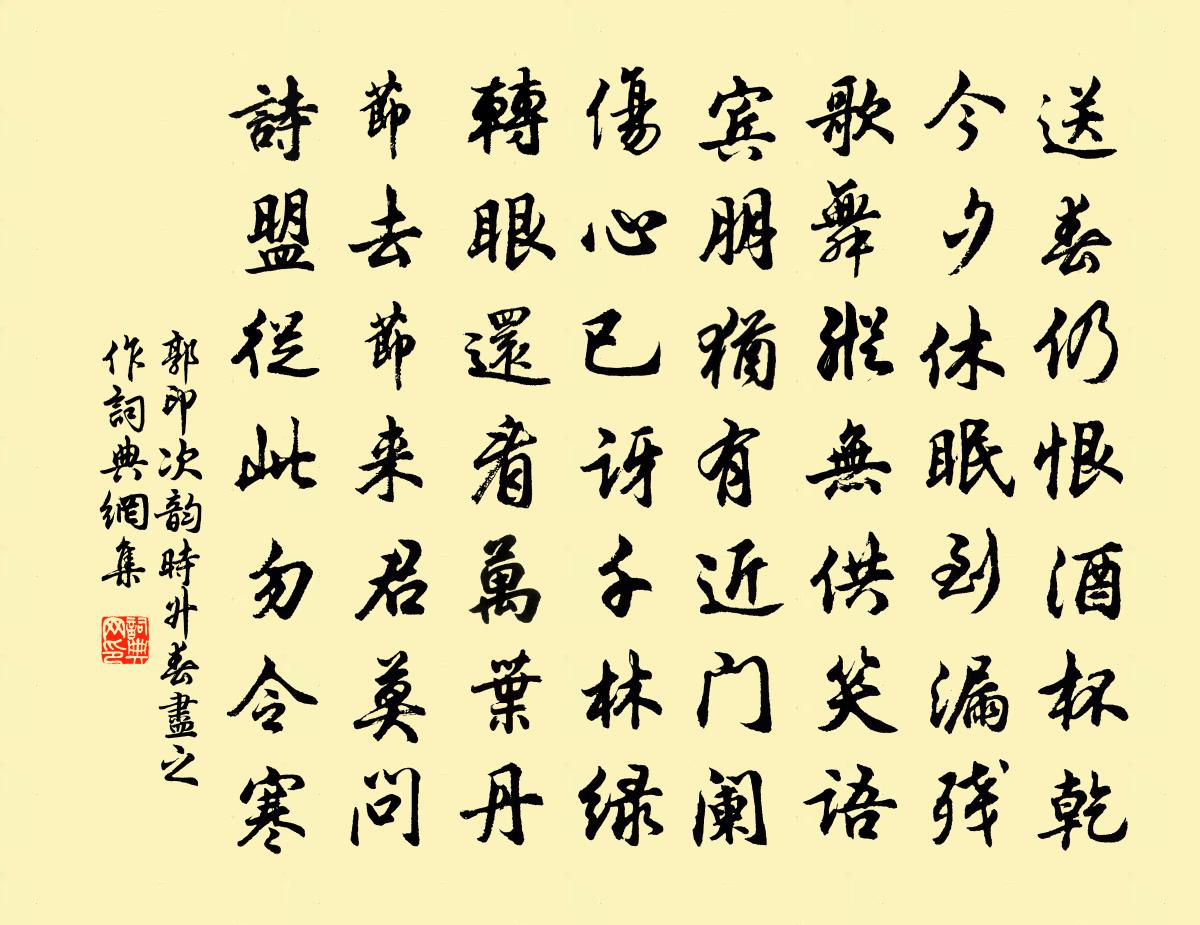 送春仍恨酒杯乾
今夕休眠到漏残
歌舞縱無供笑語
宾朋猶有近门阑
傷心已讶千林绿
轉眼還看萬葉丹
節去節来君莫问
詩盟從此勿令寒
郭印次韵時升春盡之
作詞典網集
詞典网印